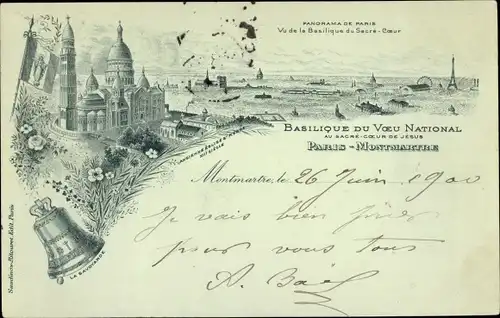 PANORAMA DE PARIS
Vu de la Basilique du Sacré-Cœur
BASILIQUE DU VŒU NATIONAL
AU SACRÉ-CŒUR DE JÉSUS
PARIS-MONTMARTRE
Montmartre, le 26 Juin 1900
Je vais bien prier
pour vous tous
A.
LA SAVOYARDE
Edit. Paris